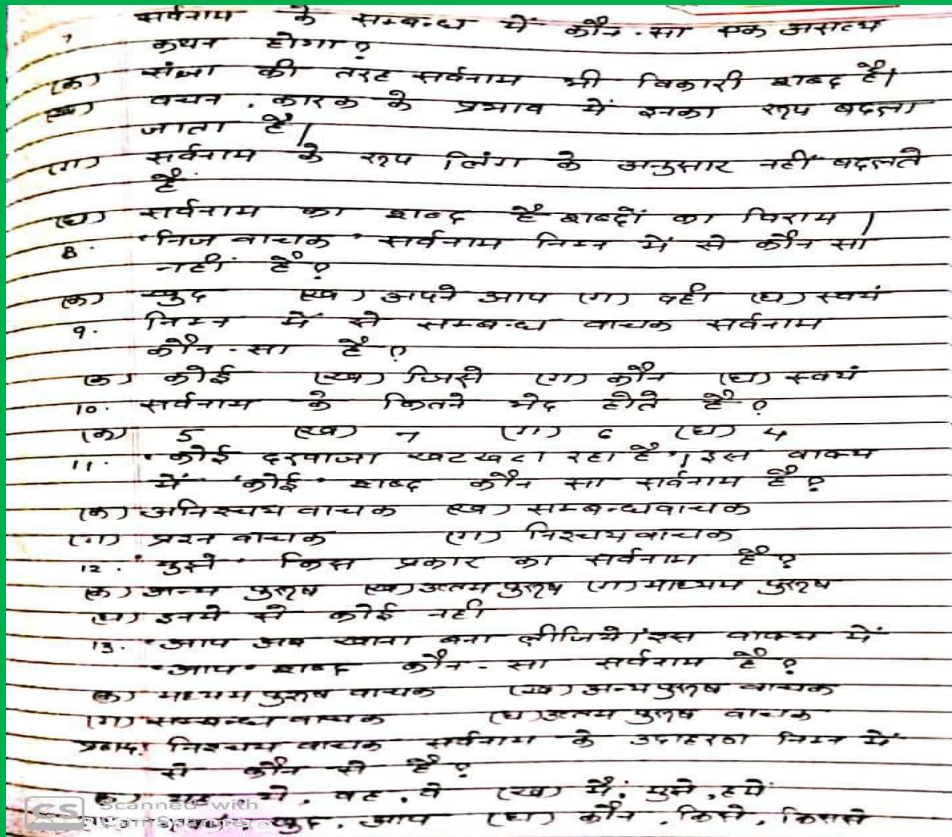 7 सर्वनाम के सम्बन्ध में कौन-सा एक असत्य
कथन होगा?
(क) संज्ञा की तरह सर्वनाम भी विकारी शब्द है।
(ख) वचन, कारक के प्रभाव में इनका रूप बदला
जाता है।
(ग) सर्वनाम के रूप लिंग के अनुसार नहीं बदलते
हैं
(घ) सर्वनाम का शब्द है शब्दों का विराम।
8. "निज वाचक" सर्वनाम निम्न में से कौन सा
नहीं है?
(क) खुद (ख) अपने आप (ग) वही (घ) स्वयं
9. निम्न में से सम्बन्ध वाचक सर्वनाम
कौन-सा है?
(क) कोई (ख) जिसे (ग) कौन (घ) स्वयं
10. सर्वनाम के कितने भेद होते है?
(क) 5 (ख) 7 (ग) 6 (घ) 4
11. "कोई दरवाजा खटखटा रहा है"। इस वाक्य
में "कोई" शब्द कौन सा सर्वनाम है?
(क) अनिश्चय वाचक (ख) सम्बन्धवाचक
(ग) प्रश्न वाचक (ग) निश्चयवाचक
12. "मुझे" किस प्रकार का सर्वनाम है?
(क) अन्य पुरुष (ख) उत्तम पुरुष (ग) माध्यम पुरुष
(घ) इनमे से कोई नही
13. "आप अब खाना बना लीजिये। इस वाक्य में
"आप" शब्द कौन-सा सर्वनाम है?
(क) माध्यम पुरुष वाचक (ख) अन्य पुरुष वाचक
(ग) सम्बन्ध वाचक (घ) उत्तम पुरुष वाचक
निश्चय वाचक सर्वनाम के उदाहरण निम्न में
से कौन से है?
(क) यह, ये, वह, वे (ख) मैं, मुझे, हमें
खुद, आप (घ) कौन, किसे, किससे
CS Scanned with
CamScanner